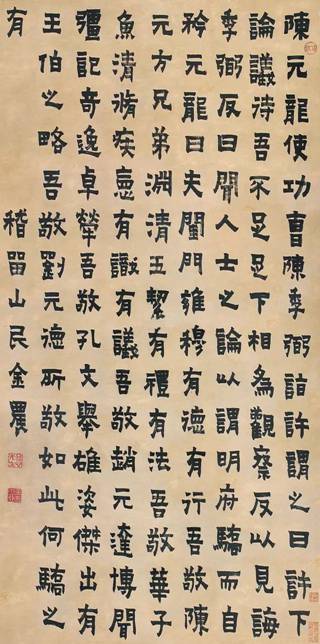 陳元龍使功曹陳季弼詣許謂之曰許下
論議待吾不足足下相為觀察反以見誨
季弼反曰聞人士之論以謂明府驕而自
矜元龍曰夫閨門雍穆有德有行吾敬陳
元方兄弟淵清玉絜有禮有法吾敬華子
魚清脩疾惡有識有議吾敬趙元達博聞
彊記奇逸卓犖吾敬孔文舉雄姿傑出有
王伯之略吾敬劉元德所敬如此何驕之
有
稽留山民金農